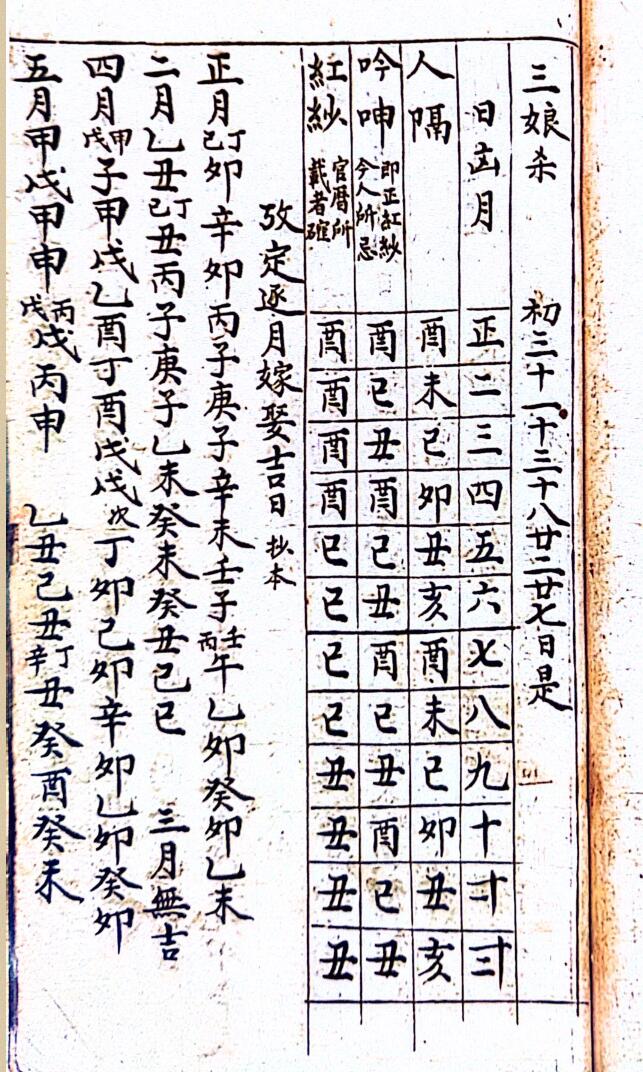 三娘杀 初三十一十三十八廿二廿七日是
日凶月 正二三四五六七八九十十一十二
人隔 酉未巳卯丑亥酉未巳卯丑亥
吟呻 即正紅紗今人所忌 酉巳丑酉巳丑酉巳丑酉巳丑
紅紗 官暦所載者確 酉酉酉酉巳巳巳巳丑丑丑丑
攷定逐月嫁娶吉日 抄本
正月丁己卯辛卯丙子庚子辛未壬子壬丙午乙卯癸卯乙未
二月乙丑丁己丑丙子庚子乙未癸未癸丑己巳 三月無吉
四月甲戊子甲戌乙酉丁酉戊戌次丁卯己卯辛卯乙卯癸卯
五月甲戌甲申丙戊戌丙申 乙丑己丑丁辛丑癸酉癸未